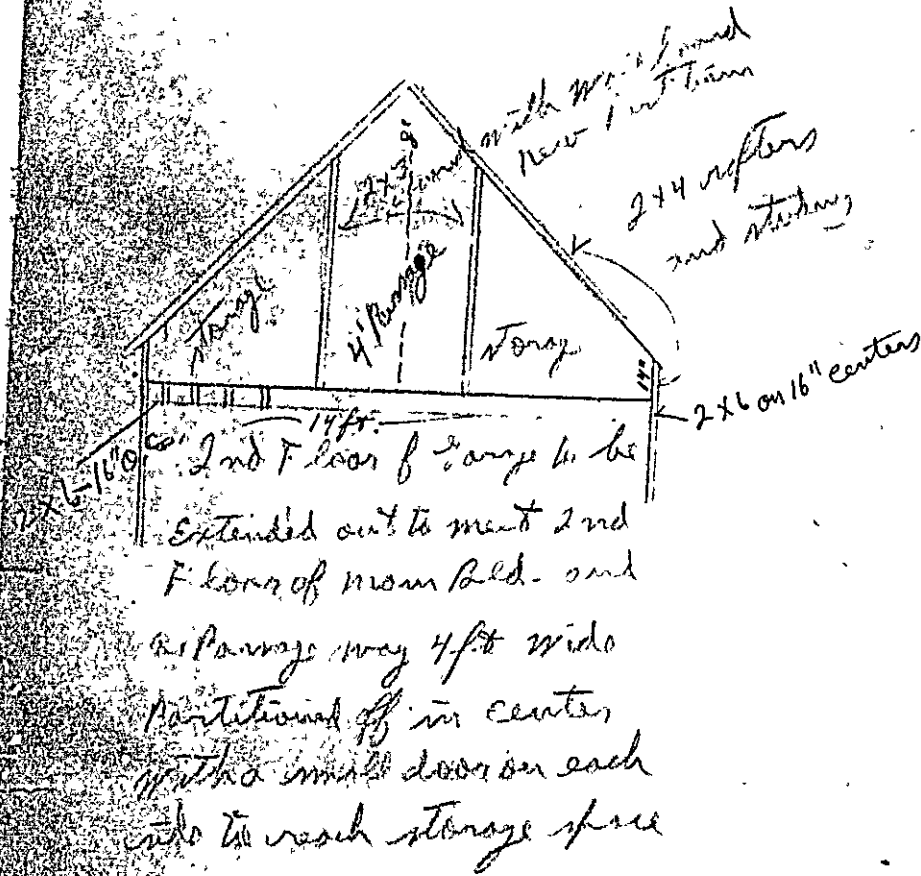 with
new
2x4 rafters
and
2x3
4' Passage
storage
Storag
14"
2x6 on 16" centers
14 ft.
2x6-16" O.C.
2nd Floor of Garage to be
Extended out to meet 2nd
Floor of main Bld. and
Passage way 4 ft wide
Partitioned off in center
with a small door on each
side to reach storage space